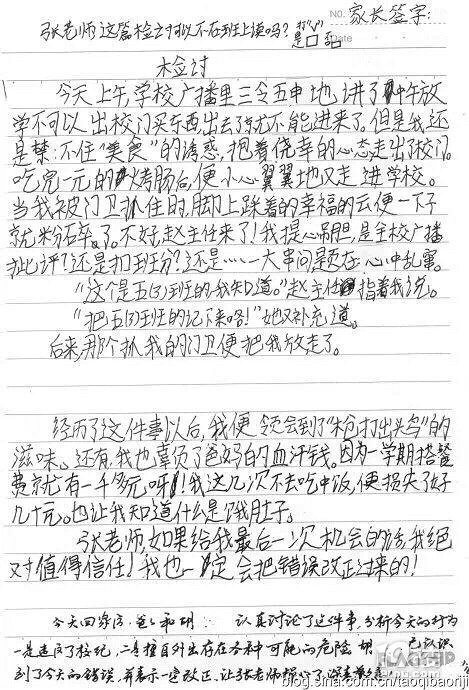 张老师这篇检讨可以不在班上读吗？ 打"√" 是□ 否□
NO. 家长签字：
Date
检讨
今天上午，学校广播里三令五申地讲了中午放
学不可以出校门买东西出去了就不能进来了。但是我还
是禁不住"美食"的诱惑，抱着侥幸的心态走出了校门。
吃完一元的烤肠后，便小心翼翼地又走进学校。
当我被门卫抓住的时，脚上踩着的幸福的云便一下子
就粉碎了。不好，赵主任来了！我提心吊胆，是全校广播
批评？还是扣班分？还是……一大串问题在心中乱窜。
"这个是五(3)班的，我知道。"赵主任指着我说。
"把五(3)班的记下来咯！"她又补充道。
后来，那个抓我的门卫便把我放走了。
经历了这件事以后，我便领会到了"枪打出头鸟"的
滋味。还有，我也辜负了爸妈的血汗钱。因为一学期搭餐
费就有一千多元呀！我这几次不去吃中饭，便损失了好
几十元。也让我知道什么是饿肚子。
张老师，如果给我最后一次机会的话，我绝
对值得信任！我也一定会把错误改正过来的！
今天回家后，爸爸和胡 认真讨论了这件事，分析今天的行为
一是违反了校纪，二是擅自外出存在各种可能的危险 胡 已认识
到了今天的错误，并表示一定改正。让张老师操心了，
blog.sina.com.cn/taoqibaoriji